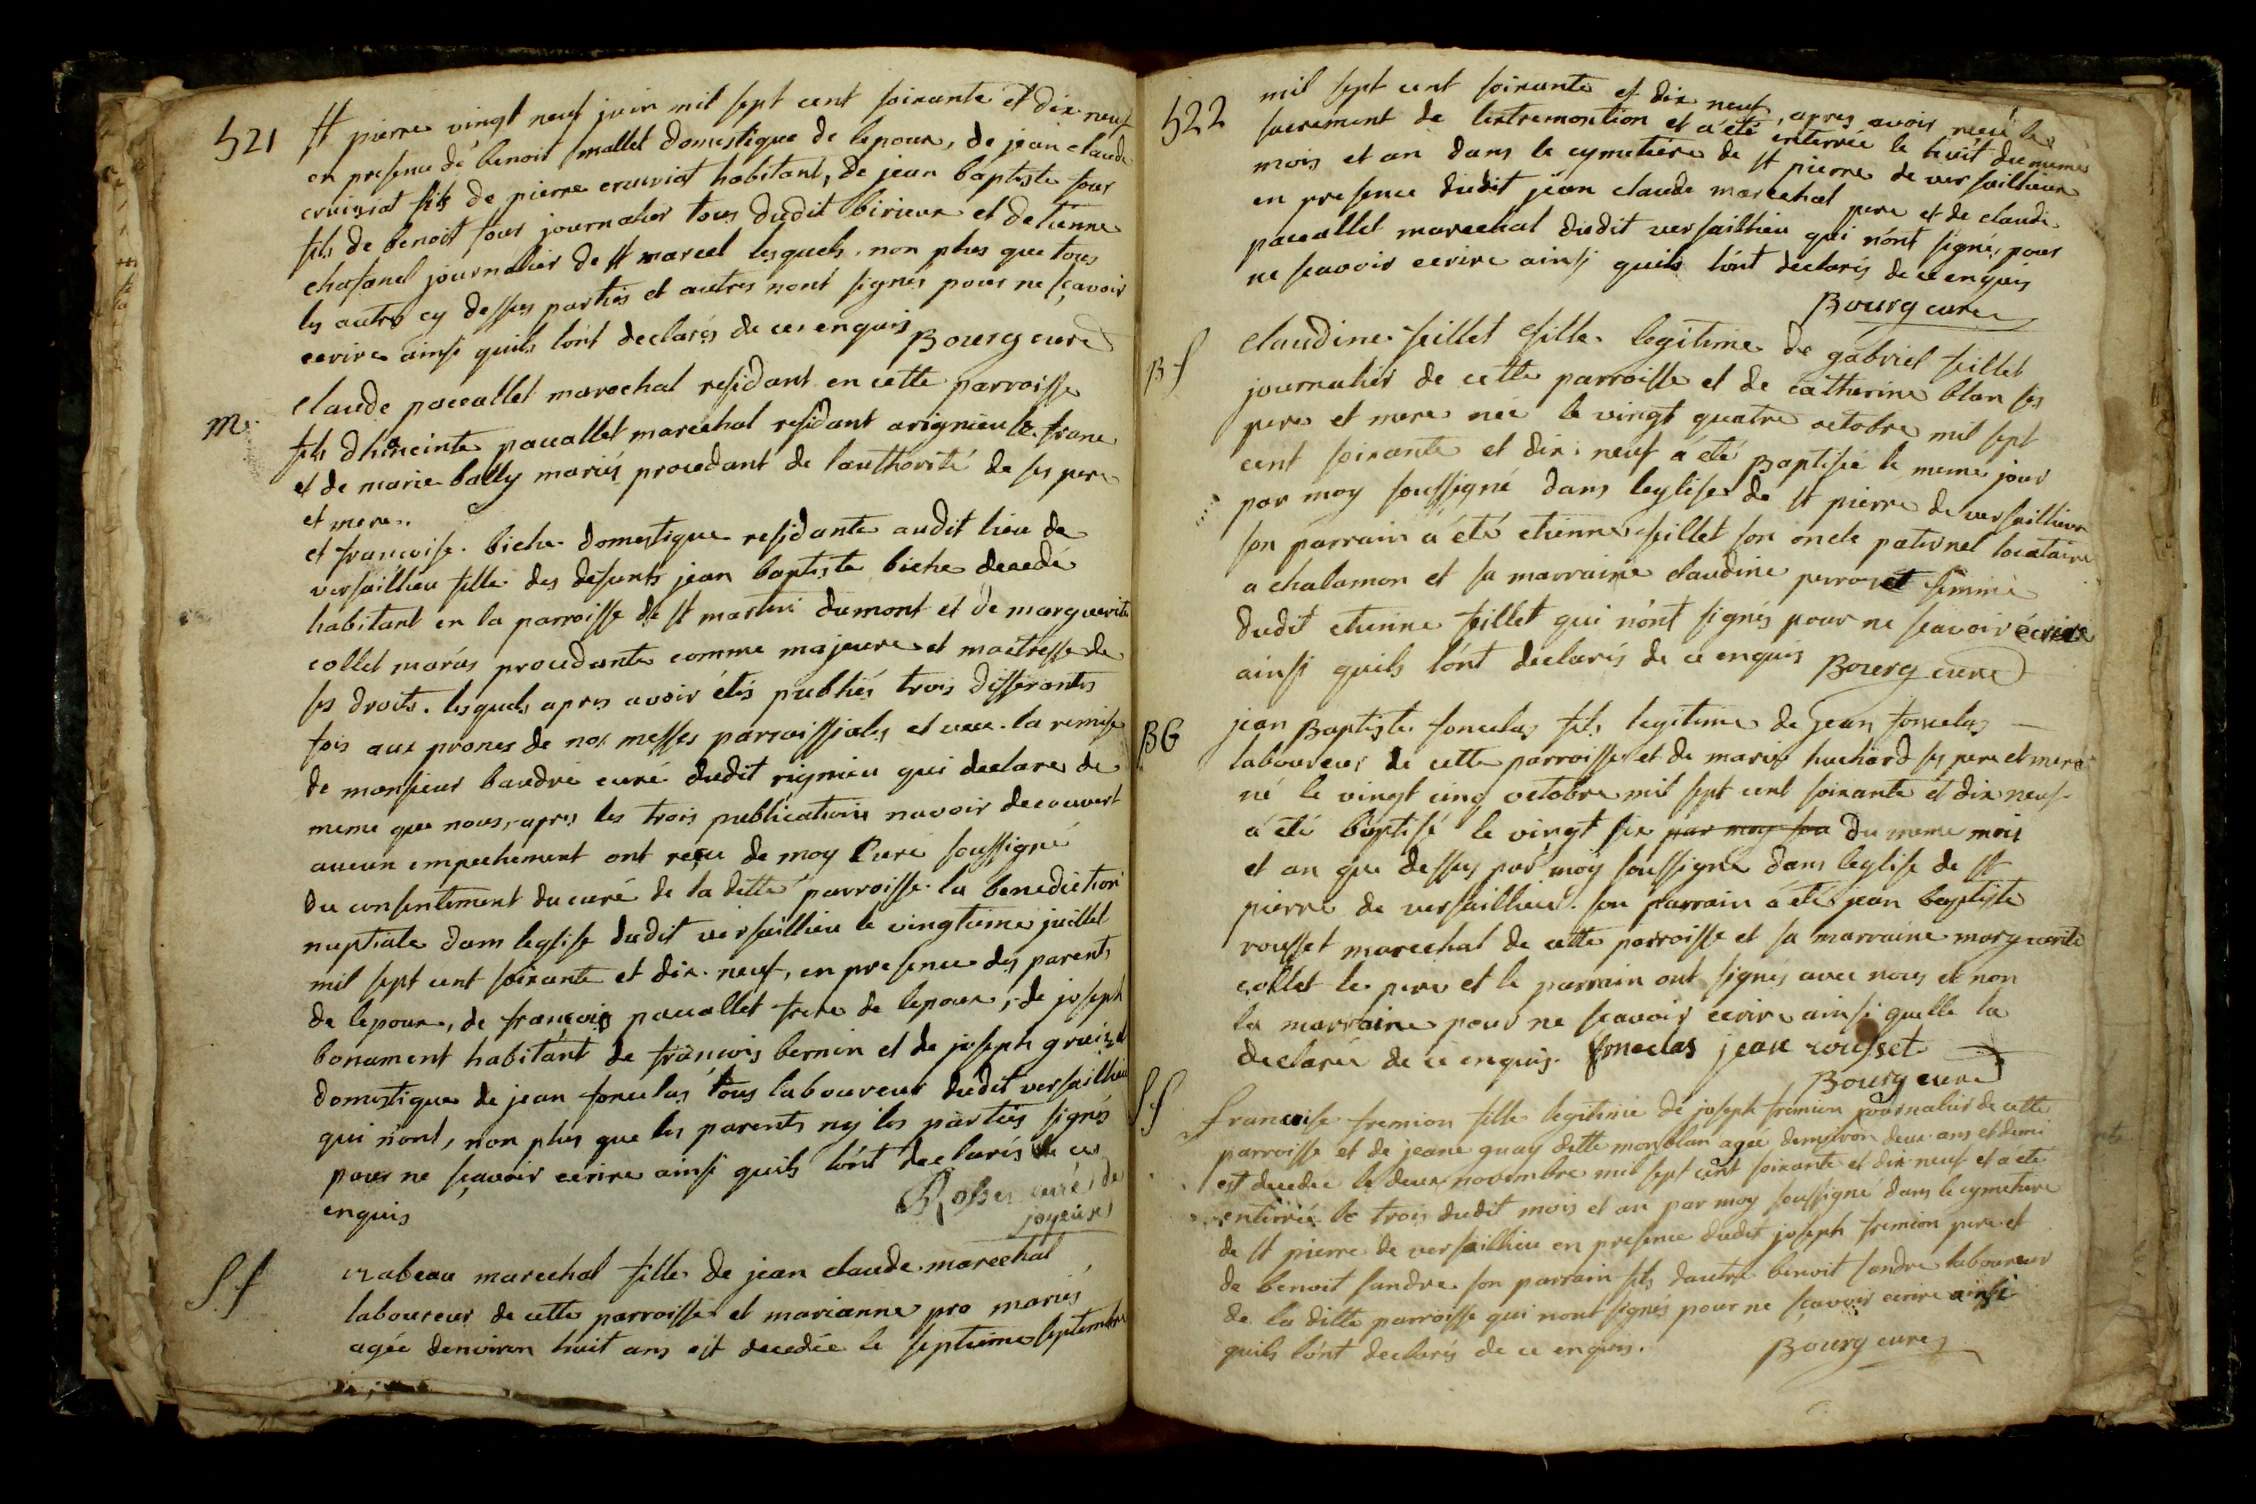 521
St pierre vingt neuf juin mil sept cent soixante et dix neuf
en presence de benoit mallet domestique de lepoux, de jean claude
cruiziat fils de pierre cruiziat habitant, de jean baptiste four
fils de benoit four journalier tous dudit birieux et detienne
chasanel journalier de st marcel lesquels non plus que tous
les autres cy dessus parties et autres nont signés pour ne sçavoir
ecrire ainsi quils lónt declarés de ce enquis Bourg curé
m.
claude pacallet marechal residant en cette parroisse
fils dhiacinte pacallet marechal residant arignieu le franc
et de marie bally mariés procedant de lauthorité de ses pere
et mere.
et françoise biche domestique residante audit lieu de
versaillieu fille des defunts jean baptiste biche decedé
habitant en la parroisse de st martin dumont et de marguerite
collet mariés procedante comme majeure et maitresse de
ses droits. lesquels apres avoir étés publiés trois differantes
fois aux prones de nos messes parroissiales et veu la remise
de monsieur baudri curé dudit rignieu qui declare de
meme que nous, apres les trois publications navoir decouvert
aucun empechement ont reçu de moy Curé soussigné
du consentement du curé de la ditte parroisse la benediction
nuptiale dans leglise dudit versaillieu le vingtieme juillet
mil sept cent soixante et dix neuf, en presence des parents
de lepoux, de francois pacallet frere de lepoux, de joseph
bonament habitánt de francois bernin et de joseph
domestique de jean fonclas tous laboureur dudit versaillieu
qui nónt, non plus que les parents ny les parties signés
pour ne sçavoir ecrire ainsi quils lónt declarés de ce
enquis curé de
joyeux
S. f
izabeau marechal fille de jean claude marechal
laboureur de cette parroisse et marianne pro mariés
agée denviron huit ans est decedée le septieme septembre
522
mil sept cent soixante et dix neuf, apres avoir recu le
sacrement de lextremontion et a été enterrée le huit du meme
mois et an dans le cymetiére de st pierre de versaillieux
en presence dudit jean claude marechal pere et de claude
pacallet marechal dudit versaillieu qui nónt signés pour
ne scavoir ecrire ainsi quils lónt declarés de ce enquis
Bourg curé
B f
claudine feillet fille legitime de gabriel feillet
journalier de cette parroisse et de catherine blan ses
pere et mere née le vingt quatre octobre mil sept
cent soixante et dix neuf a été Baptisée le meme jour
par moy soussigné dans leglise de st pierre de versaillieux
son parrain a été etienne feillet son oncle paternel locataire
a chalamon et sa marraine claudine perroset femme
dudit etienne feillet qui nónt signés pour ne scavoir écrire
ainsi quils lónt declarés de ce enquis Bourg curé
B G
jean Baptiste fonclas fils legitime de jean fonclas
laboureur de cette parroisse et de marie huchard ses pere et mere
né le vingt cinq octobre mil sept cent soixante et dix neuf
a été baptisé le vingt six par moy sou du meme mois
et an que dessus par moy soussigné dans leglise de st
pierre de versaillieu. son parrain a été jean baptiste
rousset marechal de cette parroisse et sa marraine marguerite
collet le pere et le parrain ont signés avec nous et non
la marraine pour ne scavoir ecrire ainsi quelle la
declarée de ce enquis. fonclas jean rousset
Bourg curé
S f
francoise fremion fille legitime de joseph fremion journalier de cette
parroisse et de jeane guay ditte monblan agée denviron deux ans et demi
est decedée le deux novembre mil sept cent soixante et dix neuf et a eté
enterrée le trois dudit mois et an par moy soussigné dans le cymetiere
de st pierre de versaillieu en presence dudit joseph fremion pere et
de benoit sandre son parrain fils dautre benoit sandre laboureur
de la ditte parroisse qui nont signés pour ne sçavoir ecrire ainsi
quils lónt declarés de ce enquis. Bourg curé